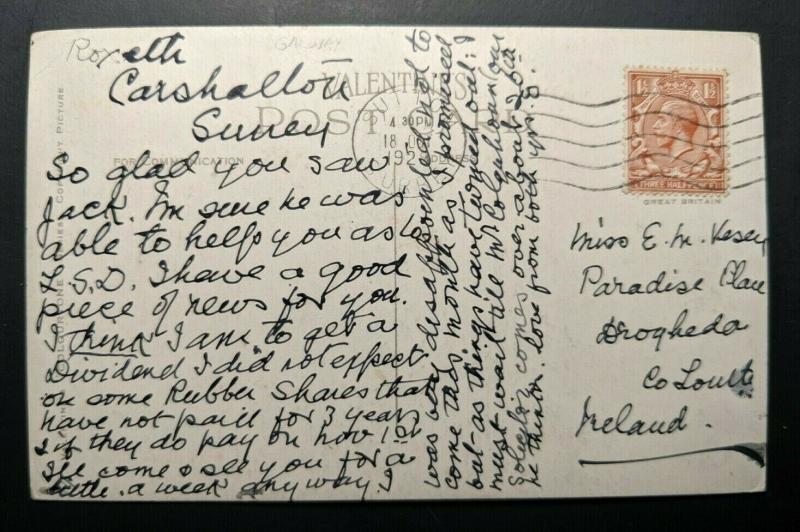 Roxeth
Carshalton
Surrey
GALWAY
VALENTINE'S
POST
FOR COMMUNICATION
ADDRESS
4 30PM
18
192
THREE HALFPENCE
GREAT BRITAIN
So glad you saw
Jack. I'm sure he was
able to help you as to
S.D. I have a good
piece of news for you.
I think I am to get a
Dividend I did not expect
on some Rubber Shares that
have not paid for 3 years
& if they do pay on Nov 1st
I'll come & see you for a
little. a week anyway. I
was very disappointed not to
come this month as I promised
but as things have turned out I
must wait till Mr Colquhoun our
Solicitor comes over about 20th
he thinks. love from both yrs.
Miss E. M. Vesey
Paradise Place
Drogheda
Co Louth
Ireland.